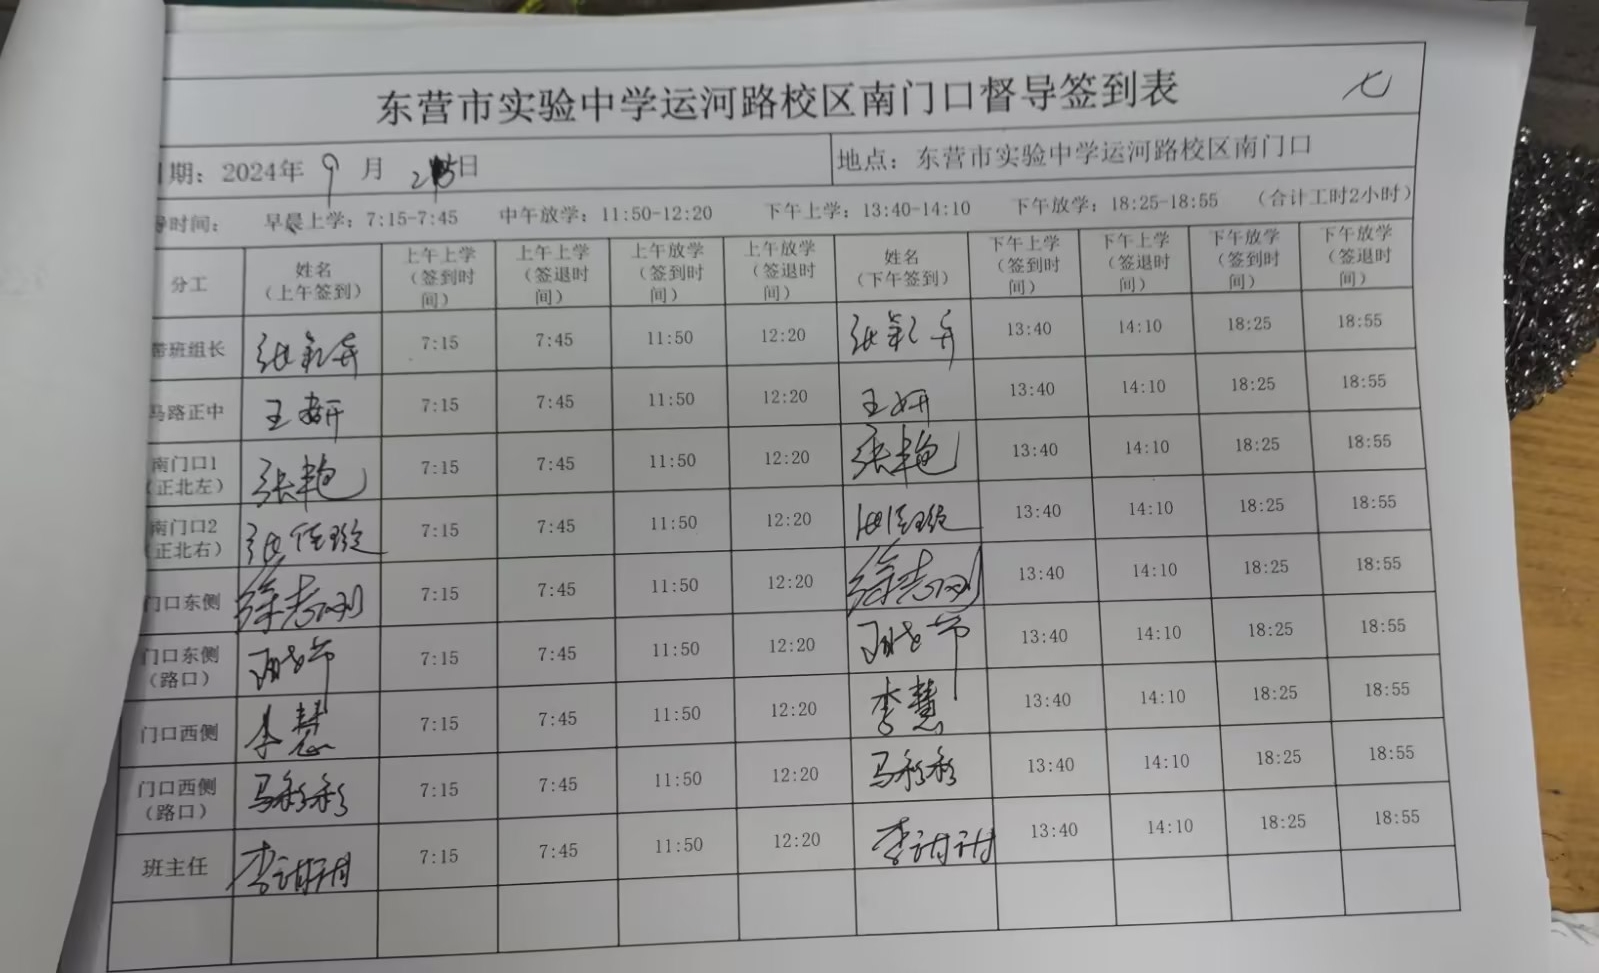 七
东营市实验中学运河路校区南门口督导签到表
期：2024年 9 月 日 地点：东营市实验中学运河路校区南门口
导时间： 早晨上学：7:15-7:45 中午放学：11:50-12:20 下午上学：13:40-14:10 下午放学：18:25-18:55 （合计工时2小时）
分工 姓名（上午签到） 上午上学（签到时间） 上午上学（签退时间） 上午放学（签到时间） 上午放学（签退时间） 姓名（下午签到） 下午上学（签到时间） 下午上学（签退时间） 下午放学（签到时间） 下午放学（签退时间）
带班组长 7:15 7:45 11:50 12:20 13:40 14:10 18:25 18:55
马路正中 王妍 7:15 7:45 11:50 12:20 王妍 13:40 14:10 18:25 18:55
南门口1（正北左） 张艳 7:15 7:45 11:50 12:20 张艳 13:40 14:10 18:25 18:55
南门口2（正北右） 7:15 7:45 11:50 12:20 13:40 14:10 18:25 18:55
门口东侧 徐志刚 7:15 7:45 11:50 12:20 徐志刚 13:40 14:10 18:25 18:55
门口东侧（路口） 7:15 7:45 11:50 12:20 13:40 14:10 18:25 18:55
门口西侧 李慧 7:15 7:45 11:50 12:20 李慧 13:40 14:10 18:25 18:55
门口西侧（路口） 马彩彩 7:15 7:45 11:50 12:20 马彩彩 13:40 14:10 18:25 18:55
班主任 7:15 7:45 11:50 12:20 13:40 14:10 18:25 18:55